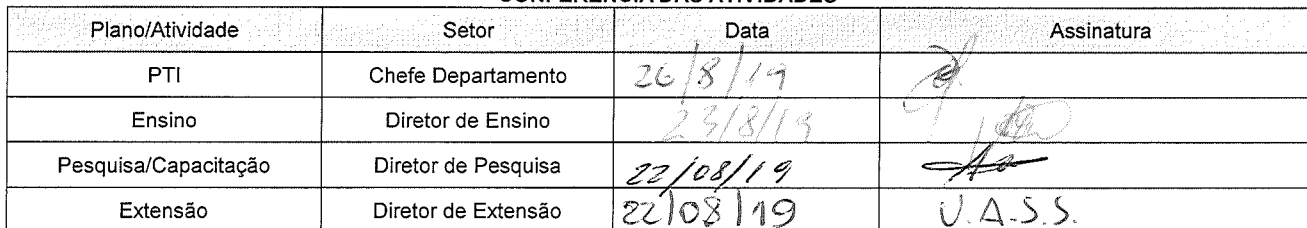 CONFERÊNCIA DAS ATIVIDADES
Plano/Atividade Setor Data Assinatura
PTI Chefe Departamento 26/8/19
Ensino Diretor de Ensino 23/8/19
Pesquisa/Capacitação Diretor de Pesquisa 22/08/19
Extensão Diretor de Extensão 22/08/19 U.A.S.S.